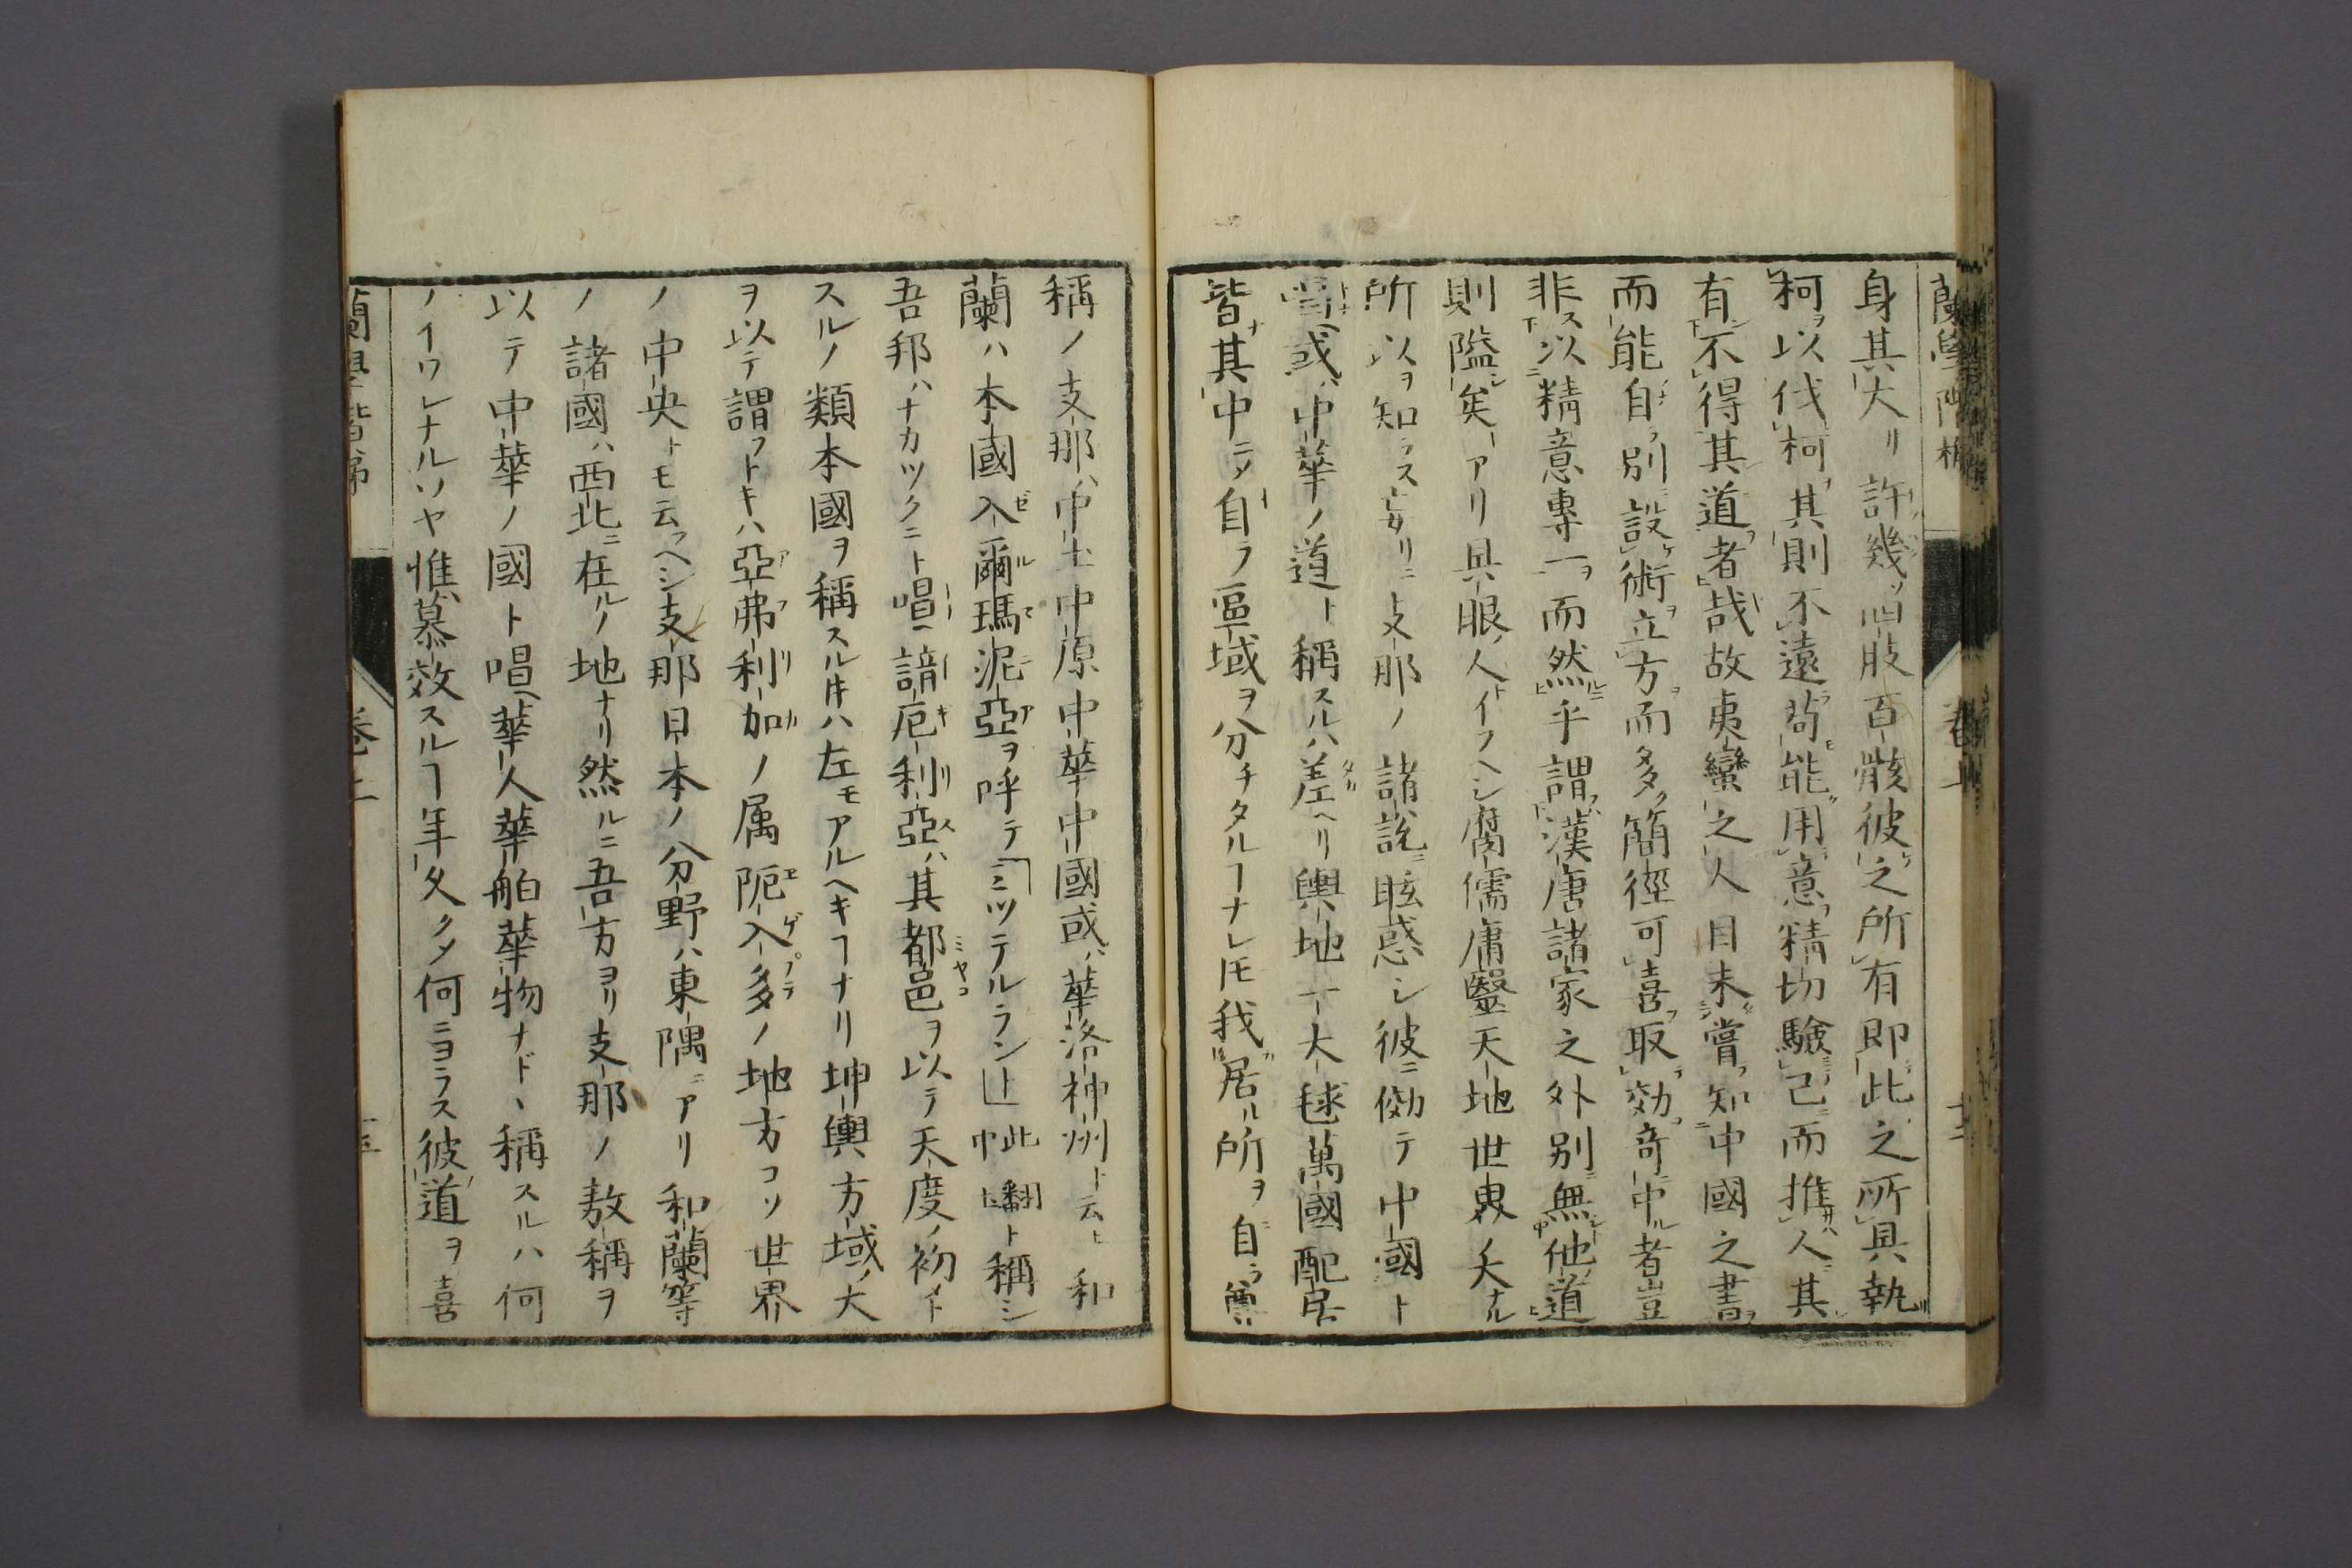 蘭學階梯 卷上
身其大リ許幾ソ四肢百骸彼之所有即此之所具執
柯ヲ以伐柯其則不遠苟能用意精切驗己而推人其
有不得其道者哉故夷蠻之人目未嘗知中國之書ヲ
而能自ラ別設術ヲ立方ヲ而多簡徑可喜取効奇中ル者豈
非ス以精意專一ヲ而然乎謂漢唐諸家之外別無他道
則隘矣アリ具眼ノ人トイフヘシ腐儒庸醫天地世界ノ大ナル
所以ヲ知ラス妄リニ支那ノ諸説ニ眩惑シ彼ニ倣テ中國ト
唱へ或ハ中華ノ道ト稱スルハ差ヘリ輿地一大毬萬國配居
皆其中ニメ自ラ區域ヲ分チタルヿナレ𪜈我居ル所ヲ自ラ尊
稱ノ支那ハ中土中原中華中國或ハ華洛神州ト云ヒ和
蘭ハ本國入爾瑪泥亞ヲ呼テ「ミツテルランド」此翻中土ト稱シ
吾邦ハナカツクニト唱へ諳厄利亞ハ其都邑ヲ以テ天度ノ初メト
スルノ類本國ヲ稱スル𪜈ハ左モアルヘキヿナリ坤輿方域ノ大
ヲ以テ謂フトキハ亞弗利加ノ属阨入多ノ地方コソ世界
ノ中央トモ云フヘシ支那日本ノ分野ハ東隅ニアリ和蘭等
ノ諸國ハ西北ニ在ルノ地ナリ然ルニ吾方ヨリ支那ノ敖稱ヲ
以テ中華ノ國ト唱へ華人華舶華物ナド丶稱スルハ何
ノイワレナルソヤ惟慕效スルヿ年久クメ何ニヨラス彼道ヲ喜
蘭學階梯 卷上